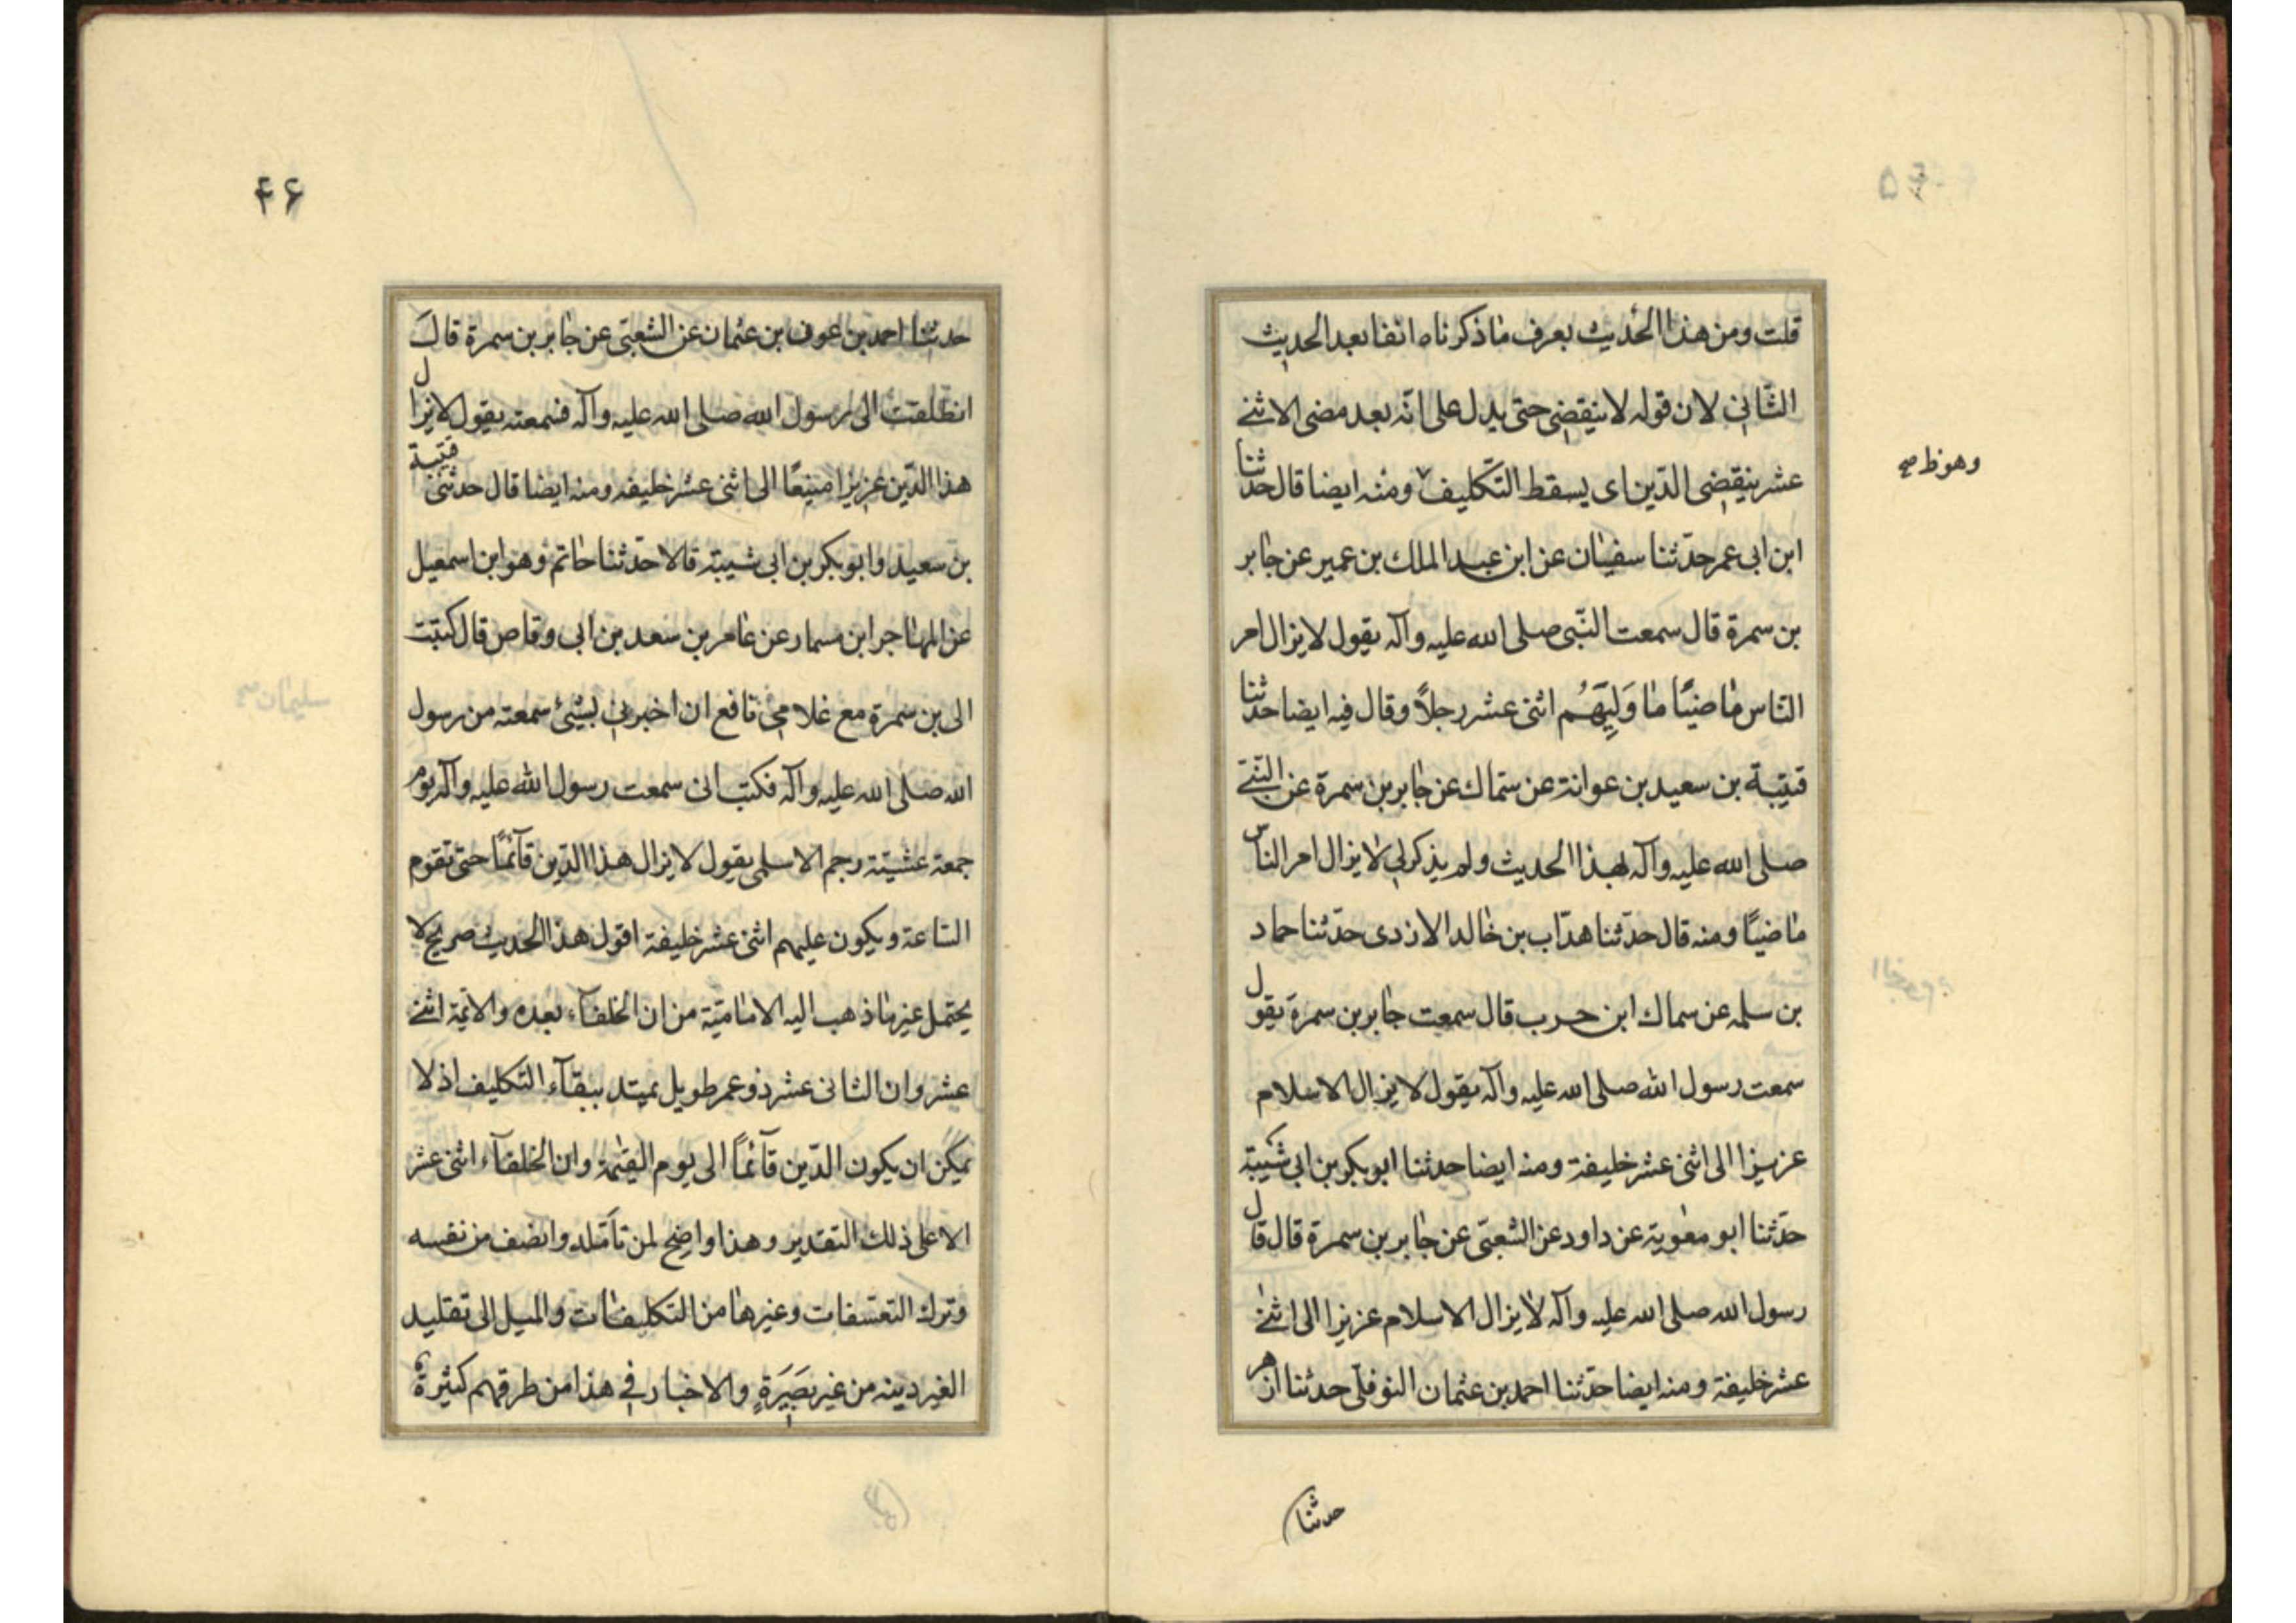 قلت ومن هذا الحديث يعرف ما ذكرناه انفا بعد الحديث
الثاني لان قوله لا ينقضي حتى يدل على انّه بعد مضى الاثنے
عشر ينقضي الدّين اى يسقط التّكليف ومنه ايضا قال حدثنا
وهو ظ صح
ابن ابى عمر حدّثنا سفيان عن ابن عبد الملك بن عمير عن جابر
بن سمرة قال سمعت النّبى صلى الله عليه وآله يقول لا يزال امر
النّاس ماضيًا ما وَلِيَهُم اثنى عشر رجلاً وقال فيه ايضا حدثنا
قتيبة بن سعيد بن عوانة عن سماك عن جابر بن سمرة عن النّبى
صلى الله عليه وآله لهذا الحديث ولم يذكر لى لا يزال امر الناس
ماضيًا ومنه قال حدّثنا هدّاب بن خالد الازدى حدّثنا حماد
بن سلمه عن سماك ابن حرب قال سمعت جابر بن سمرة يقول
سمعت رسول الله صلى الله عليه وآله يقول لا يزال الاسلام
عزيزا الى اثنى عشر خليفة ومنه ايضا حدثنا ابو بكر بن ابى شيبة
حدّثنا ابو معوية عن داود عن الشّعبى عن جابر بن سمرة قال قال
رسول الله صلى الله عليه وآله لا يزال الاسلام عزيزا الى اثنے
عشر خليفة ومنه ايضا حدّثنا احمد بن عثمان النوفلى حدثنا ازهر
حدثنا
۴۶
حدثنا احمد بن عوف بن عثمان عن الشعبى عن جابر بن سمرة قالَ
انطلقت الى رسول الله صلى الله عليه وآله فسمعته يقول لا يزال
هذا الدّين عزيزا منيعًا الى اثنى عشر خليفه ومنه ايضا قال حدثنى قتيبة
بن سعيد وابو بكر بن ابى شيبة قالا حدّثنا حاتم وهو ابن اسمعيل
عن المهاجر ابن مسمار عن عامر بن سعد بن ابى وقاص قال كتبت
الى بن سمرة مع غلامى نافع ان اخبرنى بشيئ سمعته من رسول
الله صلى الله عليه وآله فكتب انى سمعت رسول الله عليه وآله يوم
جمعة عشيّة رجم الاسلمى يقول لا يزال هذا الدّين قآئمًا حتى تقوم
السّاعة ويكون عليهم اثنى عشر خليفة اقول هذا الحديث صريح لا
يحتمل غير ما ذهب اليه الاماميّة من ان الخلفآء بعده والائمة اثنے
عشر وان الثانى عشر ذو عمر طويل يمتد ببقآء التّكليف اذ لا
يمكن ان يكون الدّين قآئماً الى يوم القيمة وان الخلفآء اثنى عشر
الا على ذلك التقدير وهذا واضح لمن تأمّله وانصف من نفسه
وترك التعسفات وغيرها من التكليفات والميل الى تقليد
الغير دينه من غير بصيرةٍ والاخبار فى هذا من طرقهم كثيرة